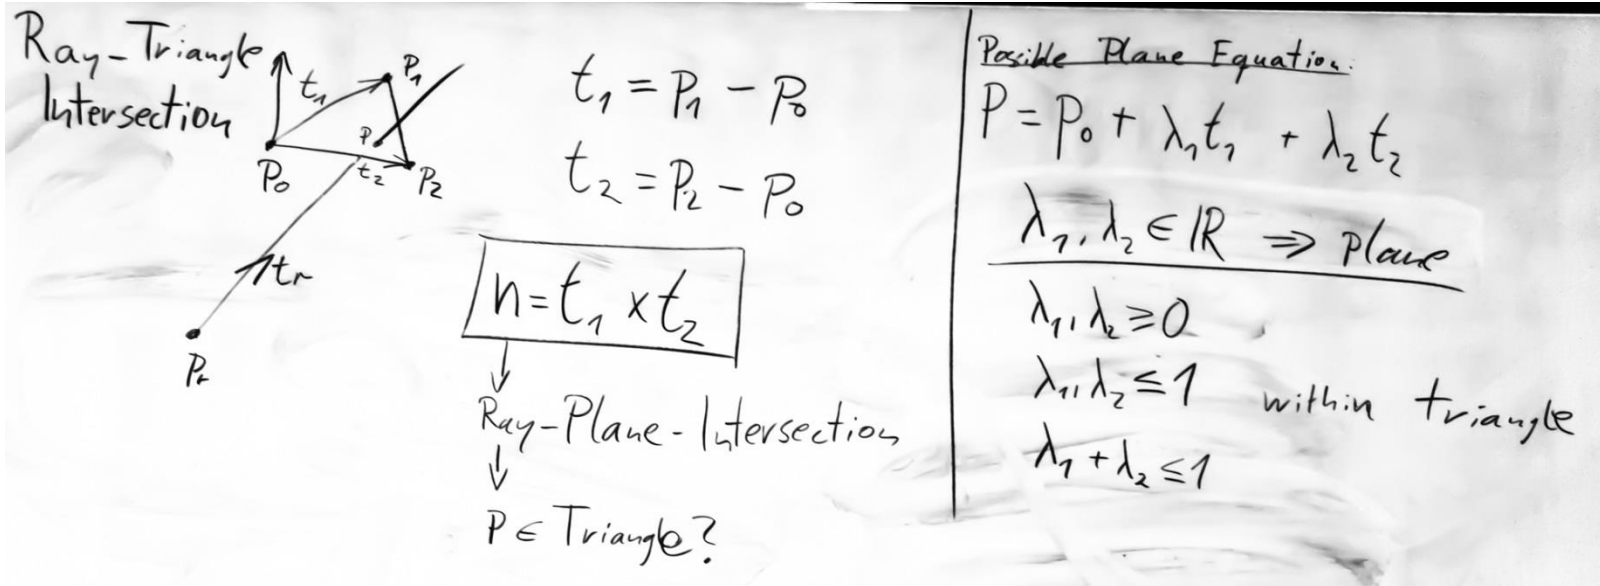 Ray-Triangle
Intersection
t₁
P₁
P
P₀
t₂
P₂
tᵣ
Pᵣ
t₁ = P₁ - P₀
t₂ = P₂ - P₀
n = t₁ × t₂
↓
Ray-Plane-Intersection
↓
P ∈ Triangle?
Possible Plane Equation:
P = P₀ + λ₁t₁ + λ₂t₂
λ₁, λ₂ ∈ ℝ ⇒ plane
λ₁, λ₂ ≥ 0
λ₁, λ₂ ≤ 1 within triangle
λ₁ + λ₂ ≤ 1